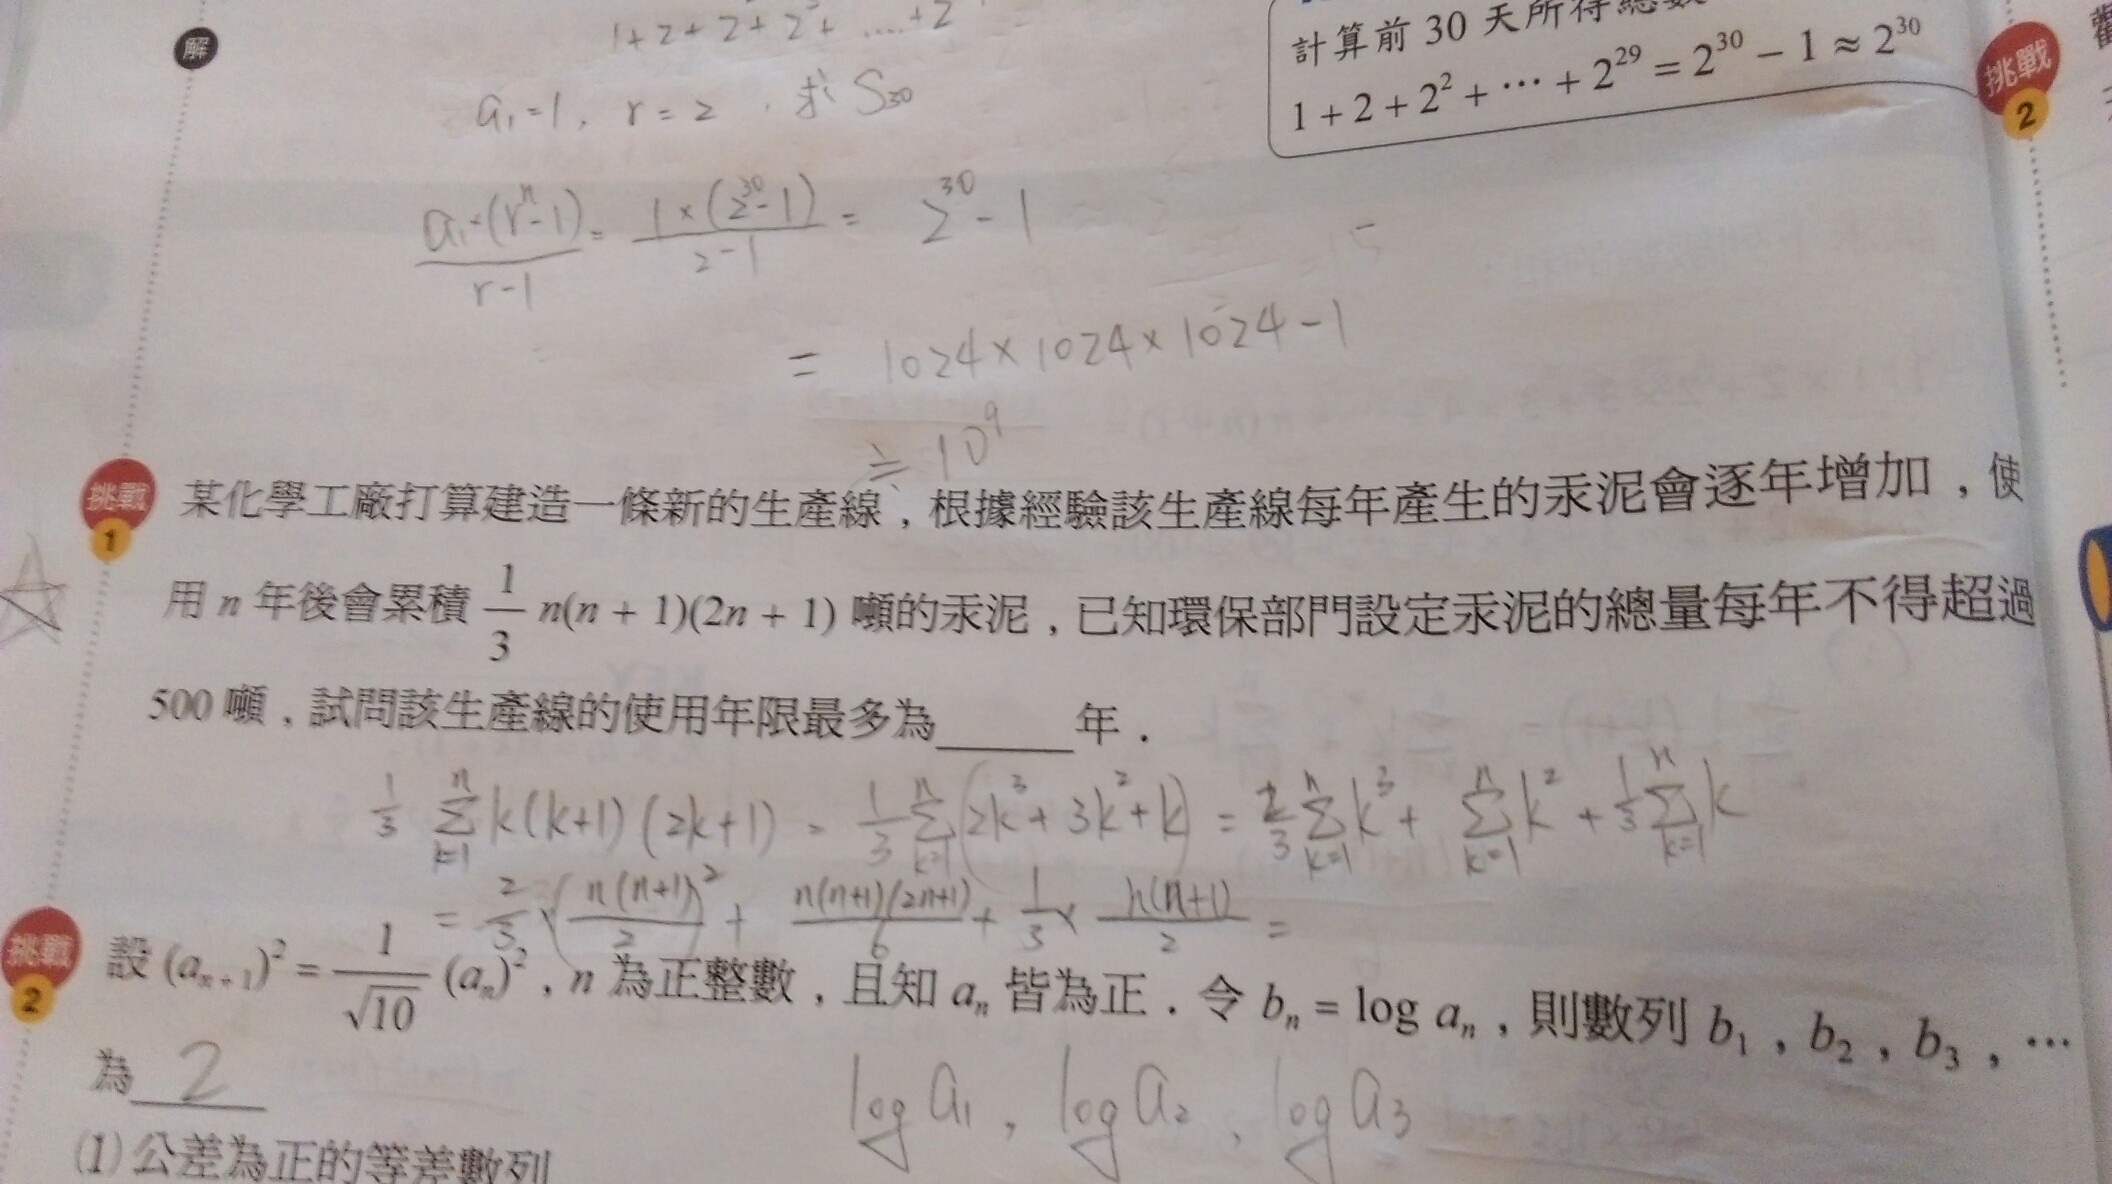 解
1+2+2²+2³+.....+2
a₁=1, r=2 , 求 S₃₀
計算前 30 天所得總數
1 + 2 + 2² + ⋯ + 2²⁹ = 2³⁰ − 1 ≈ 2³⁰
挑戰 2
a₁·(rⁿ-1)/r-1 = 1×(2³⁰-1)/2-1 = 2³⁰-1
= 1024×1024×1024-1
≒ 10⁹
挑戰 1
某化學工廠打算建造一條新的生產線，根據經驗該生產線每年產生的汞泥會逐年增加，使
用 n 年後會累積 1/3 n(n + 1)(2n + 1) 噸的汞泥，已知環保部門設定汞泥的總量每年不得超過
500 噸，試問該生產線的使用年限最多為______年．
1/3 Σₖ₌₁ⁿ k(k+1)(2k+1) = 1/3 Σₖ₌₁ⁿ (2k³+3k²+k) = 2/3 Σₖ₌₁ⁿ k³ + Σₖ₌₁ⁿ k² + 1/3 Σₖ₌₁ⁿ k
= 2/3 × (n(n+1)/2)² + n(n+1)(2n+1)/6 + 1/3 × n(n+1)/2 =
挑戰 2
設 (aₙ₊₁)² = 1/√10 (aₙ)²，n 為正整數，且知 aₙ 皆為正．令 bₙ = log aₙ，則數列 b₁，b₂，b₃，⋯
為 2
log a₁ , log a₂ , log a₃
(1) 公差為正的等差數列